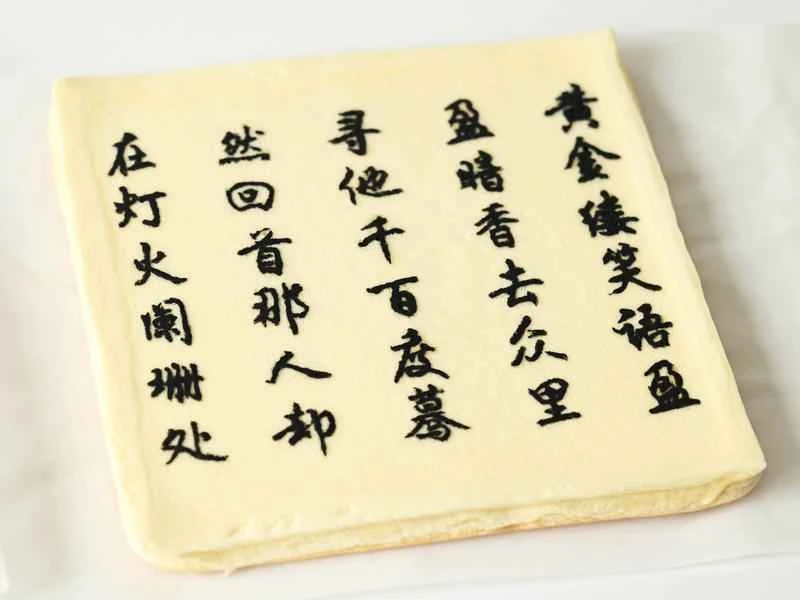 黄金缕笑语盈
盈暗香去众里
寻他千百度蓦
然回首那人却
在灯火阑珊处